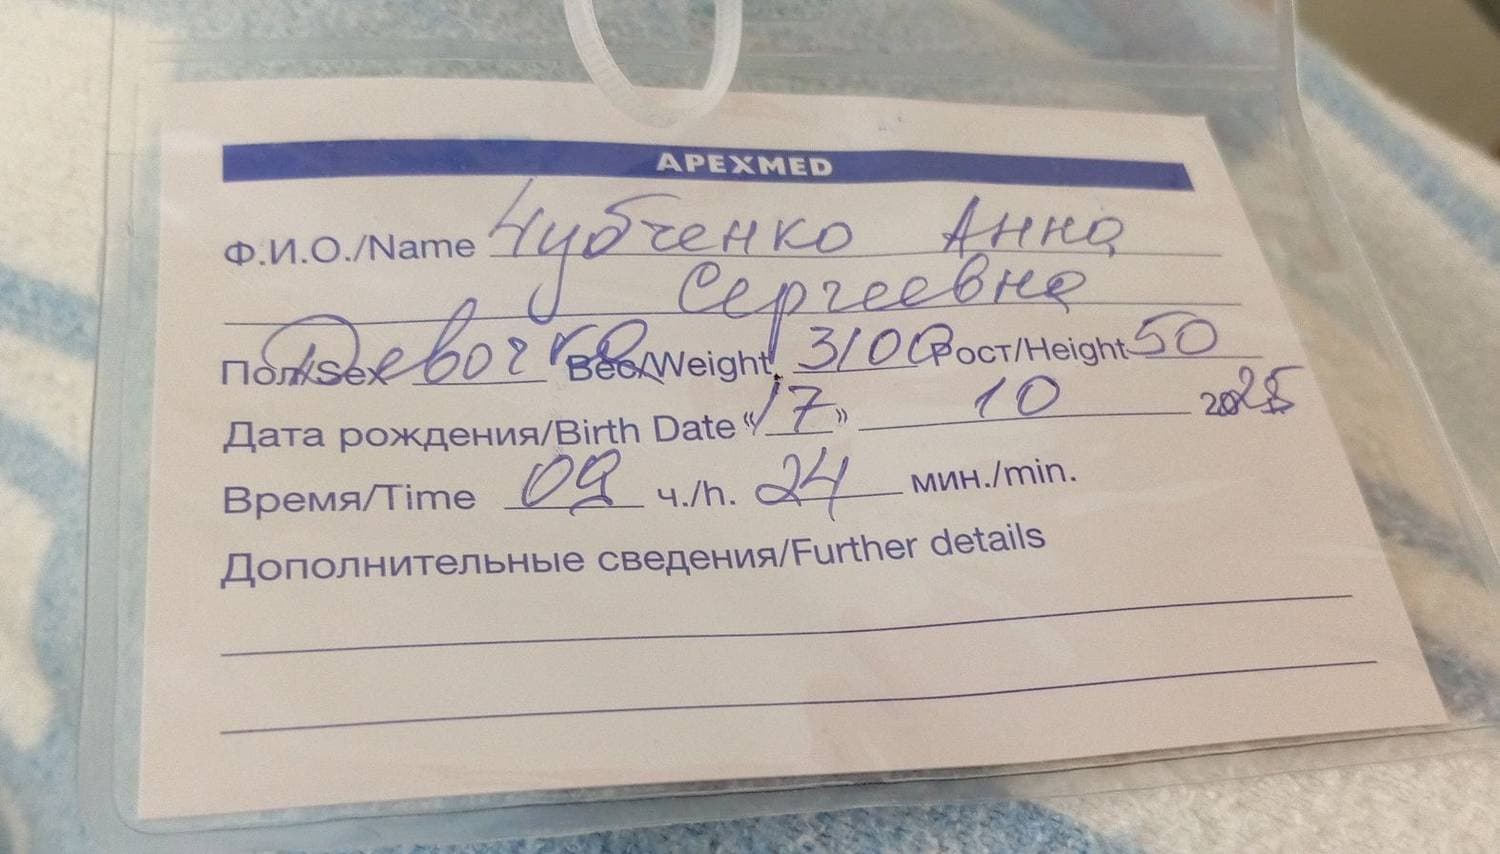 APEXMED
Ф.И.О./Name Чубченко Анна
Сергеевна
Пол/Sex Девочка Вес/Weight 3100 Рост/Height 50
Дата рождения/Birth Date «17» 10 2025
Время/Time 09 ч./h. 24 мин./min.
Дополнительные сведения/Further details